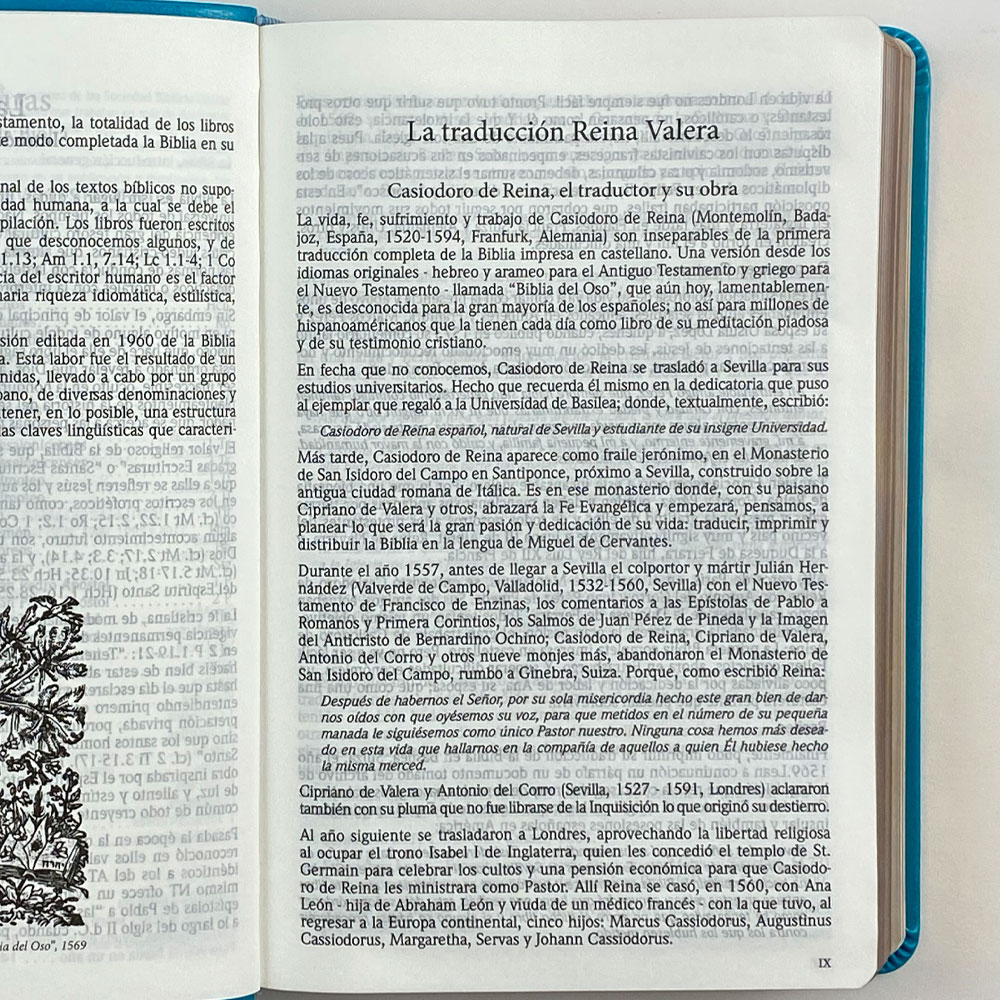 stamento, la totalidad de los libros
e modo completada la Biblia en su
nal de los textos bíblicos no supo-
dad humana, a la cual se debe el
pilación. Los libros fueron escritos
que desconocemos algunos, y de
1.13; Am 1.1, 7.14; Lc 1.1-4; 1 Co
cia del escritor humano es el factor
naria riqueza idiomática, estilística,
sión editada en 1960 de la Biblia
a. Esta labor fue el resultado de un
nidas, llevado a cabo por un grupo
pano, de diversas denominaciones y
tener, en lo posible, una estructura
las claves lingüísticas que caracteri-
ia del Oso", 1569
La traducción Reina Valera
Casiodoro de Reina, el traductor y su obra
La vida, fe, sufrimiento y trabajo de Casiodoro de Reina (Montemolín, Bada-
joz, España, 1520-1594, Franfurk, Alemania) son inseparables de la primera
traducción completa de la Biblia impresa en castellano. Una versión desde los
idiomas originales - hebreo y arameo para el Antiguo Testamento y griego para
el Nuevo Testamento - llamada “Biblia del Oso”, que aún hoy, lamentablemen-
te, es desconocida para la gran mayoría de los españoles; no así para millones de
hispanoaméricanos que la tienen cada día como libro de su meditación piadosa
y de su testimonio cristiano.
En fecha que no conocemos, Casiodoro de Reina se trasladó a Sevilla para sus
estudios universitarios. Hecho que recuerda él mismo en la dedicatoria que puso
al ejemplar que regaló a la Universidad de Basilea; donde, textualmente, escribió:
Casiodoro de Reina español, natural de Sevilla y estudiante de su insigne Universidad.
Más tarde, Casiodoro de Reina aparece como fraile jerónimo, en el Monasterio
de San Isidoro del Campo en Santiponce, próximo a Sevilla, construido sobre la
antigua ciudad romana de Itálica. Es en ese monasterio donde, con su paisano
Cipriano de Valera y otros, abrazará la Fe Evangélica y empezará, pensamos, a
planear lo que será la gran pasión y dedicación de su vida: traducir, imprimir y
distribuir la Biblia en la lengua de Miguel de Cervantes.
Durante el año 1557, antes de llegar a Sevilla el colportor y mártir Julián Her-
nández (Valverde de Campo, Valladolid, 1532-1560, Sevilla) con el Nuevo Tes-
tamento de Francisco de Enzinas, los comentarios a las Epístolas de Pablo a
Romanos y Primera Corintios, los Salmos de Juan Pérez de Pineda y la Imagen
del Anticristo de Bernardino Ochino; Casiodoro de Reina, Cipriano de Valera,
Antonio del Corro y otros nueve monjes más, abandonaron el Monasterio de
San Isidoro del Campo, rumbo a Ginebra, Suiza. Porque, como escribió Reina:
Después de habernos el Señor, por su sola misericordia hecho este gran bien de dar-
nos oídos con que oyésemos su voz, para que metidos en el número de su pequeña
manada le siguiésemos como único Pastor nuestro. Ninguna cosa hemos más desea-
do en esta vida que hallarnos en la compañía de aquellos a quien Él hubiese hecho
la misma merced.
Cipriano de Valera y Antonio del Corro (Sevilla, 1527 - 1591, Londres) aclararon
también con su pluma que no fue librarse de la Inquisición lo que originó su destierro.
Al año siguiente se trasladaron a Londres, aprovechando la libertad religiosa
al ocupar el trono Isabel I de Inglaterra, quien les concedió el templo de St.
Germain para celebrar los cultos y una pensión económica para que Casiodo-
ro de Reina les ministrara como Pastor. Allí Reina se casó, en 1560, con Ana
León - hija de Abraham León y viuda de un médico francés - con la que tuvo, al
regresar a la Europa continental, cinco hijos: Marcus Cassiodorus, Augustinus
Cassiodorus, Margaretha, Servas y Johann Cassiodorus.
IX